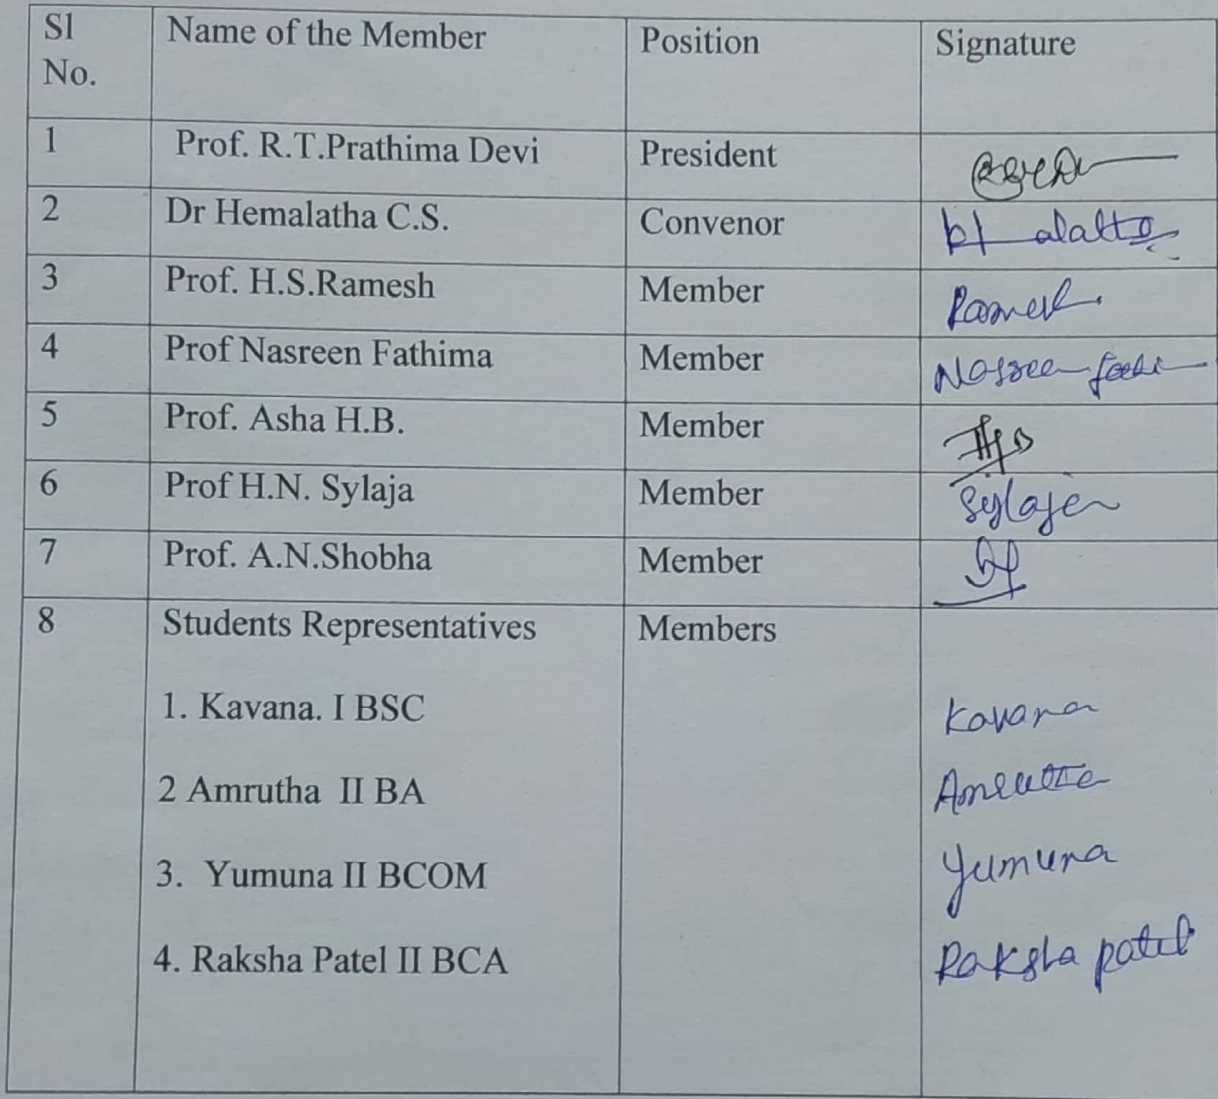 Sl No. Name of the Member Position Signature
1 Prof. R.T.Prathima Devi President
2 Dr Hemalatha C.S. Convenor
3 Prof. H.S.Ramesh Member Ramesh
4 Prof Nasreen Fathima Member Nasreen
5 Prof. Asha H.B. Member
6 Prof H.N. Sylaja Member Sylaja
7 Prof. A.N.Shobha Member
8 Students Representatives Members
1. Kavana. I BSC Kavana
2 Amrutha II BA Amrutha
3. Yumuna II BCOM Yumuna
4. Raksha Patel II BCA Raksha patel